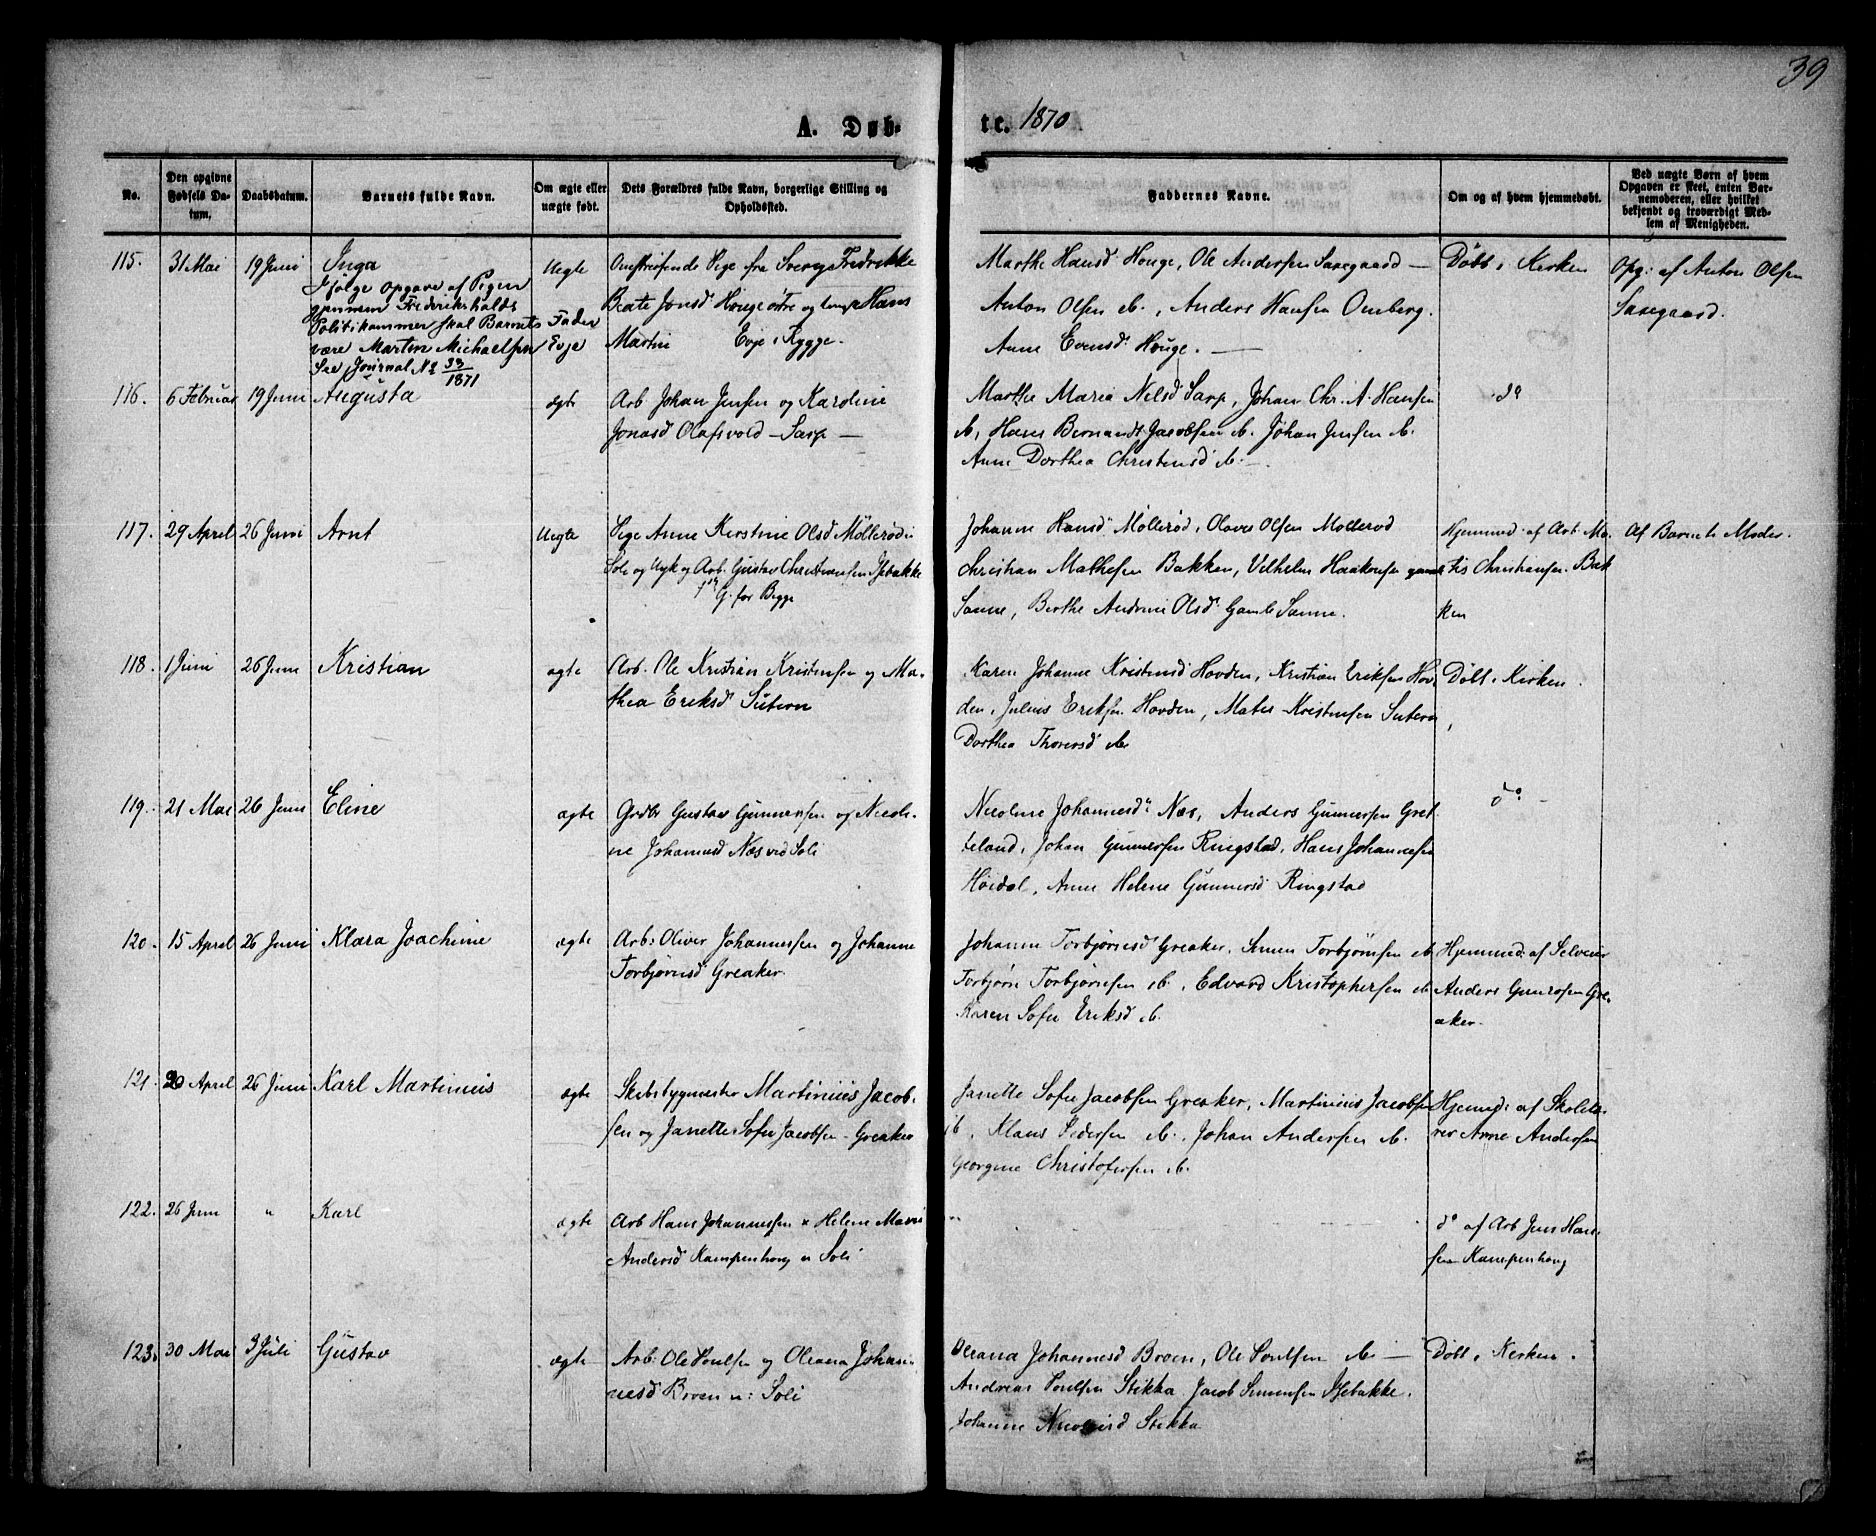 39
A. Døb-
te. 1870
No.
Den opgivne
Fødsels Da-
tum.
Daabsdatum.
Barnets fulde Navn.
Om ægte eller
uægte født.
Dets Forældres fulde Navn, borgerlige Stilling og
Opholdssted.
Faddernes Navne.
Om og af hvem hjemmedøbt.
Ved uægte Børn af hvem
Opgaven er skeet, enten Bar-
nemoderen, eller hvilket
bekjendt og troværdigt Med-
lem af Menigheden.
115. 31 Mai 19 Juni Inga
Ifølge Opgave af Pigen
gjennem Frederikshalds
Politikammer skal Barnets Fader
være Martin Michaelsen Evje
See Journal No 33/1871
Uegte
Omstreifende Pige fra Fredrikke
Beate Jonsd Houge og Hans
Martin Evje i Rygge.
Marthe Hansd Houge, Ole Andersen Saxegaard —
Anton Olsen ib., Anders Hansen Omberg.
Anne Evensd Houge. —
Døbt i Kirken
Opg: af Anton Olsen
Saxegaard.
116. 6 Februar 19 Juni Augusta
ægte
Arb Johan Jensen og Karoline
Jonasd Olafsvold — Sarp —
Marthe Maria Nelsd Sarp, Johan Chr. A. Hansen
ib, Hans Bernandt Jacobsen ib. Johan Jensen ib.
Anne Dorthea Christensd ib. —
do
117. 29 April 26 Juni Arnt
Uegte
Pige Anne Kirstine Olsd Møllerød i
Soli og Ugk og Arb. Gustav Christiansen Isebakke
1ste G. for Begge
Johanne Hansd Møllerød, Olaves Olsen Møllerød
Christian Mathesen Bakken, Vilhelm Haakensen gamle
Sanne, Berthe Andrine Olsd Gamle Sanne.
Hjemmed: af Arb. Ma-
tis Christiansen Bak
ken
Af Barnets Moder.
118. 1 Juni 26 Juni Kristian
ægte
Arb: Ole Kristian Kristensen og Ma-
thea Eriksd Sutern
Karen Johanne Kristensd Hovden, Kristian Eriksen Hov-
den, Julius Eriksen Hovden, Mates Kristensen Sutern
Dorthea Thorersd ib.
Døbt i Kirken.
119. 21 Mai 26 Juni Eline
ægte
Grdbr Gustav Gunnersen og Nicoli-
ne Johannesd Næs ved Soli
Nicoline Johannesd Næs, Anders Gunnersen Gret-
teland, Johan Gunnersen Ringstad, Hans Johannesen
Høidal, Anne Helene Gunnersd Ringstad
do —
120. 15 April 26 Juni Klara Joachime
ægte
Arb: Oliver Johannesen og Johanne
Torbjørnsd Greaker.
Johanne Torbjørnsd Greaker, Simen Torbjørnsen ib
Torbjørn Torbjørnsen ib., Edvard Kristophersen ib
Karen Sofie Eriksd ib.
Hjemmed: af Selveier
Anders Gunersen Gre-
aker.
121. 20 April 26 Juni Karl Martinius
ægte
Skibsbygmester Martinius Jacob-
sen og Janette Sofie Jacobsen — Greaker
Janette Sofie Jacobsen Greaker, Martinius Jacobsen
ib., Klaus Pedersen ib., Johan Andersen ib.
Georgine Christofersen ib.
Hjemmed: af Skolelæ-
rer Arne Andersen
122. 26 Juni " Karl
ægte
Arb Hans Johannesen x Helene Marie
Andersd Kampenhoug u Soli
do af Arb Jens Han-
sen Kampenhoug
123. 30 Mai 3 Juli Gustav
ægte
Arb: Ole Poulsen og Oleana Johan-
nesd Broen u: Soli
Oleana Johannesd Broen, Ole Poulsen ib —
Andreas Poulsen Stikka Jacob Simensen Isebakke.
Johanne Stikka
Døbt i Kirken.